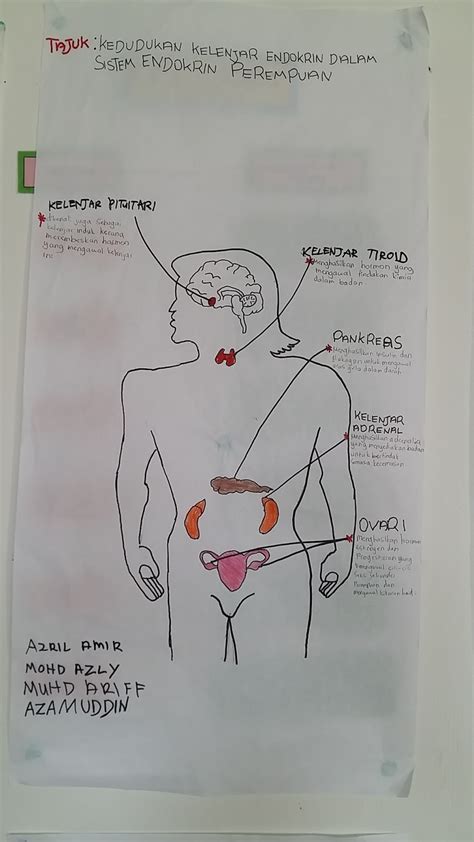 TAJUK: KEDUDUKAN KELENJAR ENDOKRIN DALAM
SISTEM ENDOKRIN PEREMPUAN
KELENJAR PITUITARI
juga sebagai
kelenjar induk kerana
merembeskan hormon
yang mengawal kelenjar
KELENJAR TIROID
Menghasilkan hormon yang
mengawal tindakan kimia
dalam badan
PANKREAS
Menghasilkan insulin dan
glukagon untuk mengawal
gula dalam darah
KELENJAR
ADRENAL
Menghasilkan adrenalin
yang menyediakan badan
untuk bertindak
semasa kecemasan
OVARI
Menghasilkan hormon
estrogen dan
Progesteron yang
mengawal ciri
seks sekunder
Perempuan dan
mengawal kitaran haid
AZRIL AMIR
MOHD AZLY
MUHD ARIFF
AZAMUDDIN